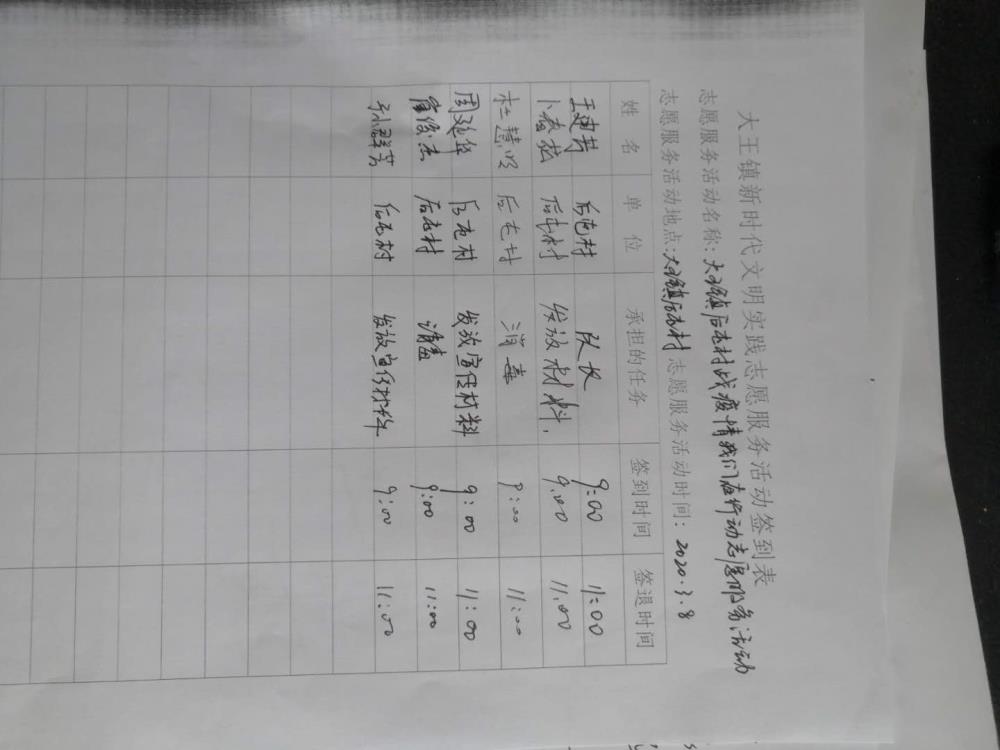 大王镇新时代文明实践志愿服务活动签到表
志愿服务活动名称:大王镇后屯村战疫情我们在行动志愿服务活动
志愿服务活动地点:大王镇后屯村 志愿服务活动时间:2020.3.8
姓名 单位 承担的任务 签到时间 签退时间
王建芳 后屯村 队长 9:00 11:00
后屯村 发放材料. 9:00 11:00
杜慧明 后屯村 消毒 9:00 11:00
后屯村 发放宣传材料 9:00 11:00
后屯村 消毒 9:00 11:00
孙群芳 后屯村 发放宣传材料 9:00 11:00